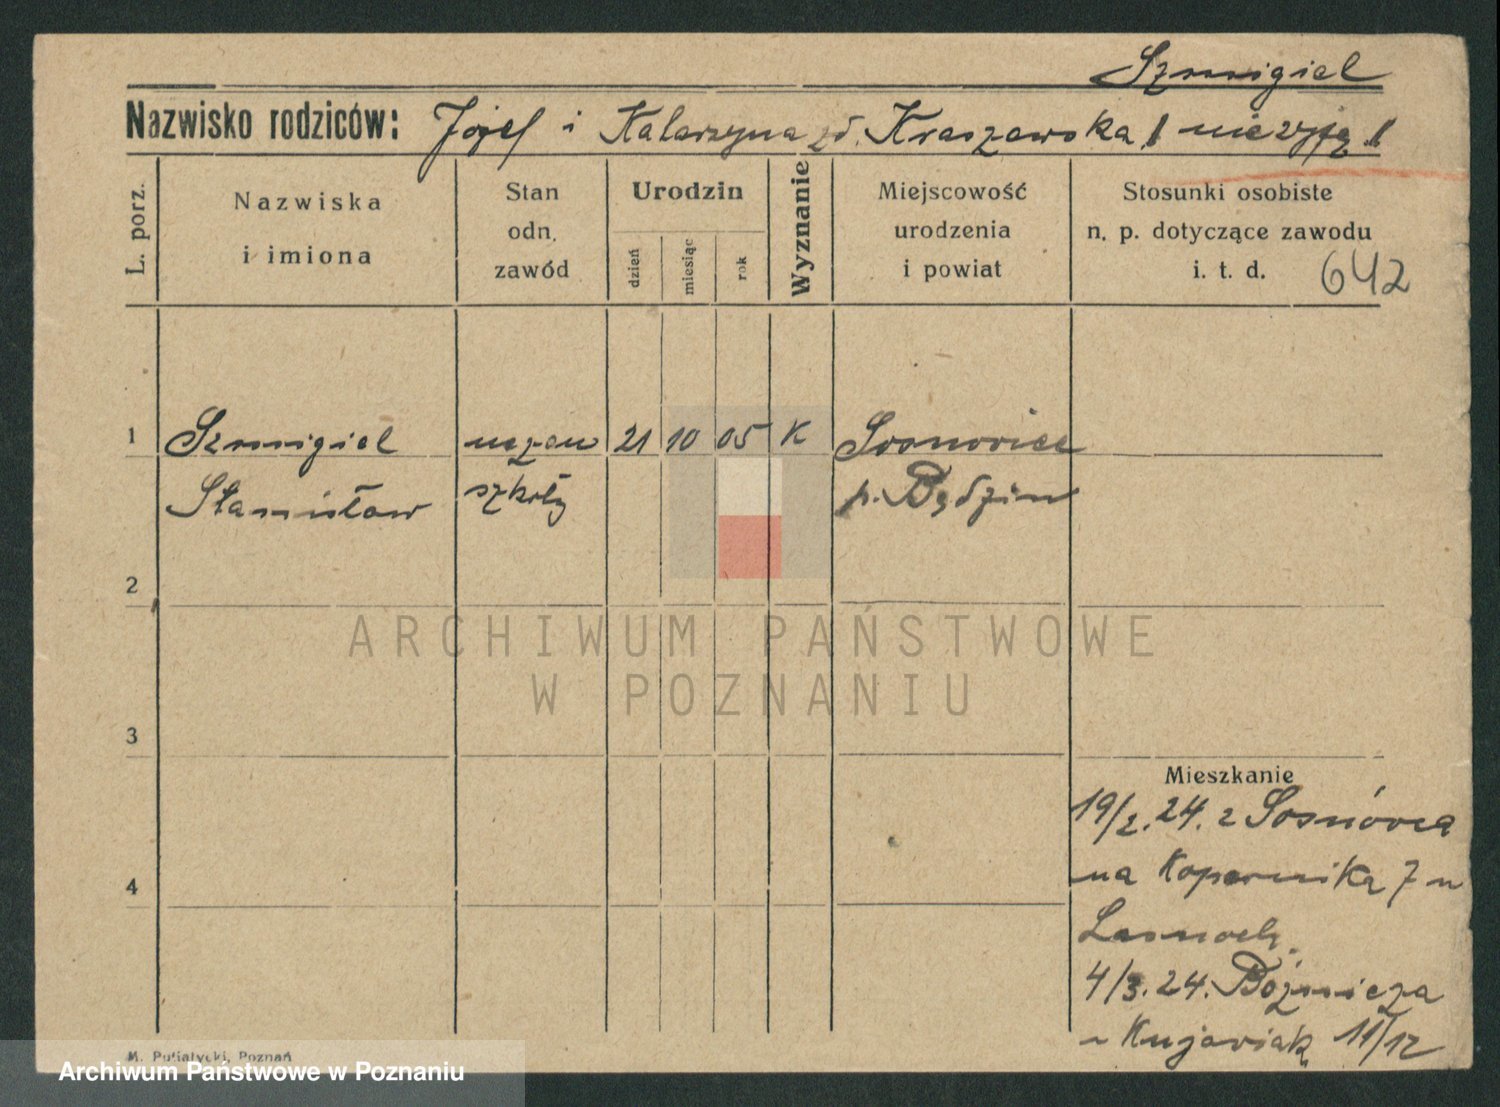 Szmigiel
Nazwisko rodziców: Józef i Katarzyna zd. Kraszewska /nie żyją./
L. porz.
Nazwiska
i imiona
Stan
odn.
zawód
Urodzin
dzień
miesiąc
rok
Wyznanie
Miejscowość
urodzenia
i powiat
Stosunki osobiste
n. p. dotyczące zawodu
i. t. d.
642
1 Szmigiel uczeń 21 10 05 K Sosnowiec
Stanisław szkoły p. Będzin
2
3
4
ARCHIWUM PAŃSTWOWE
W POZNANIU
Mieszkanie
19/2.24. z Sosnówca
na Kopernika 7 u
4/3.24. Bóżnicza
u Kujawiak 11/12
M. Putiatycki, Poznań
Archiwum Państwowe w Poznaniu